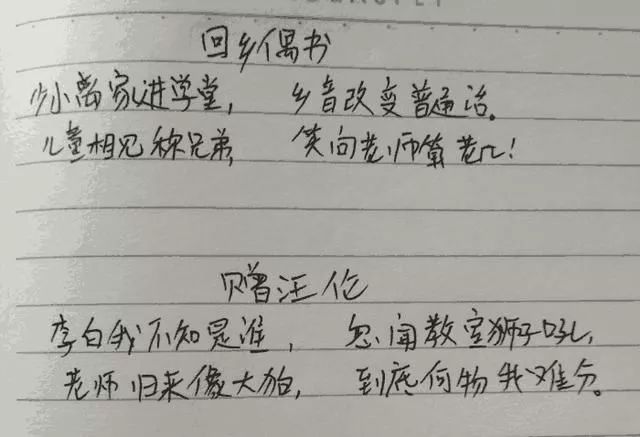 回乡偶书
少小离家进学堂， 乡音改变普通话。
儿童相见称兄弟， 笑问老师第老几！
赠汪伦
李白我不知是谁， 忽闻教室狮子吼，
老师归来像大船， 到底何物我难分。